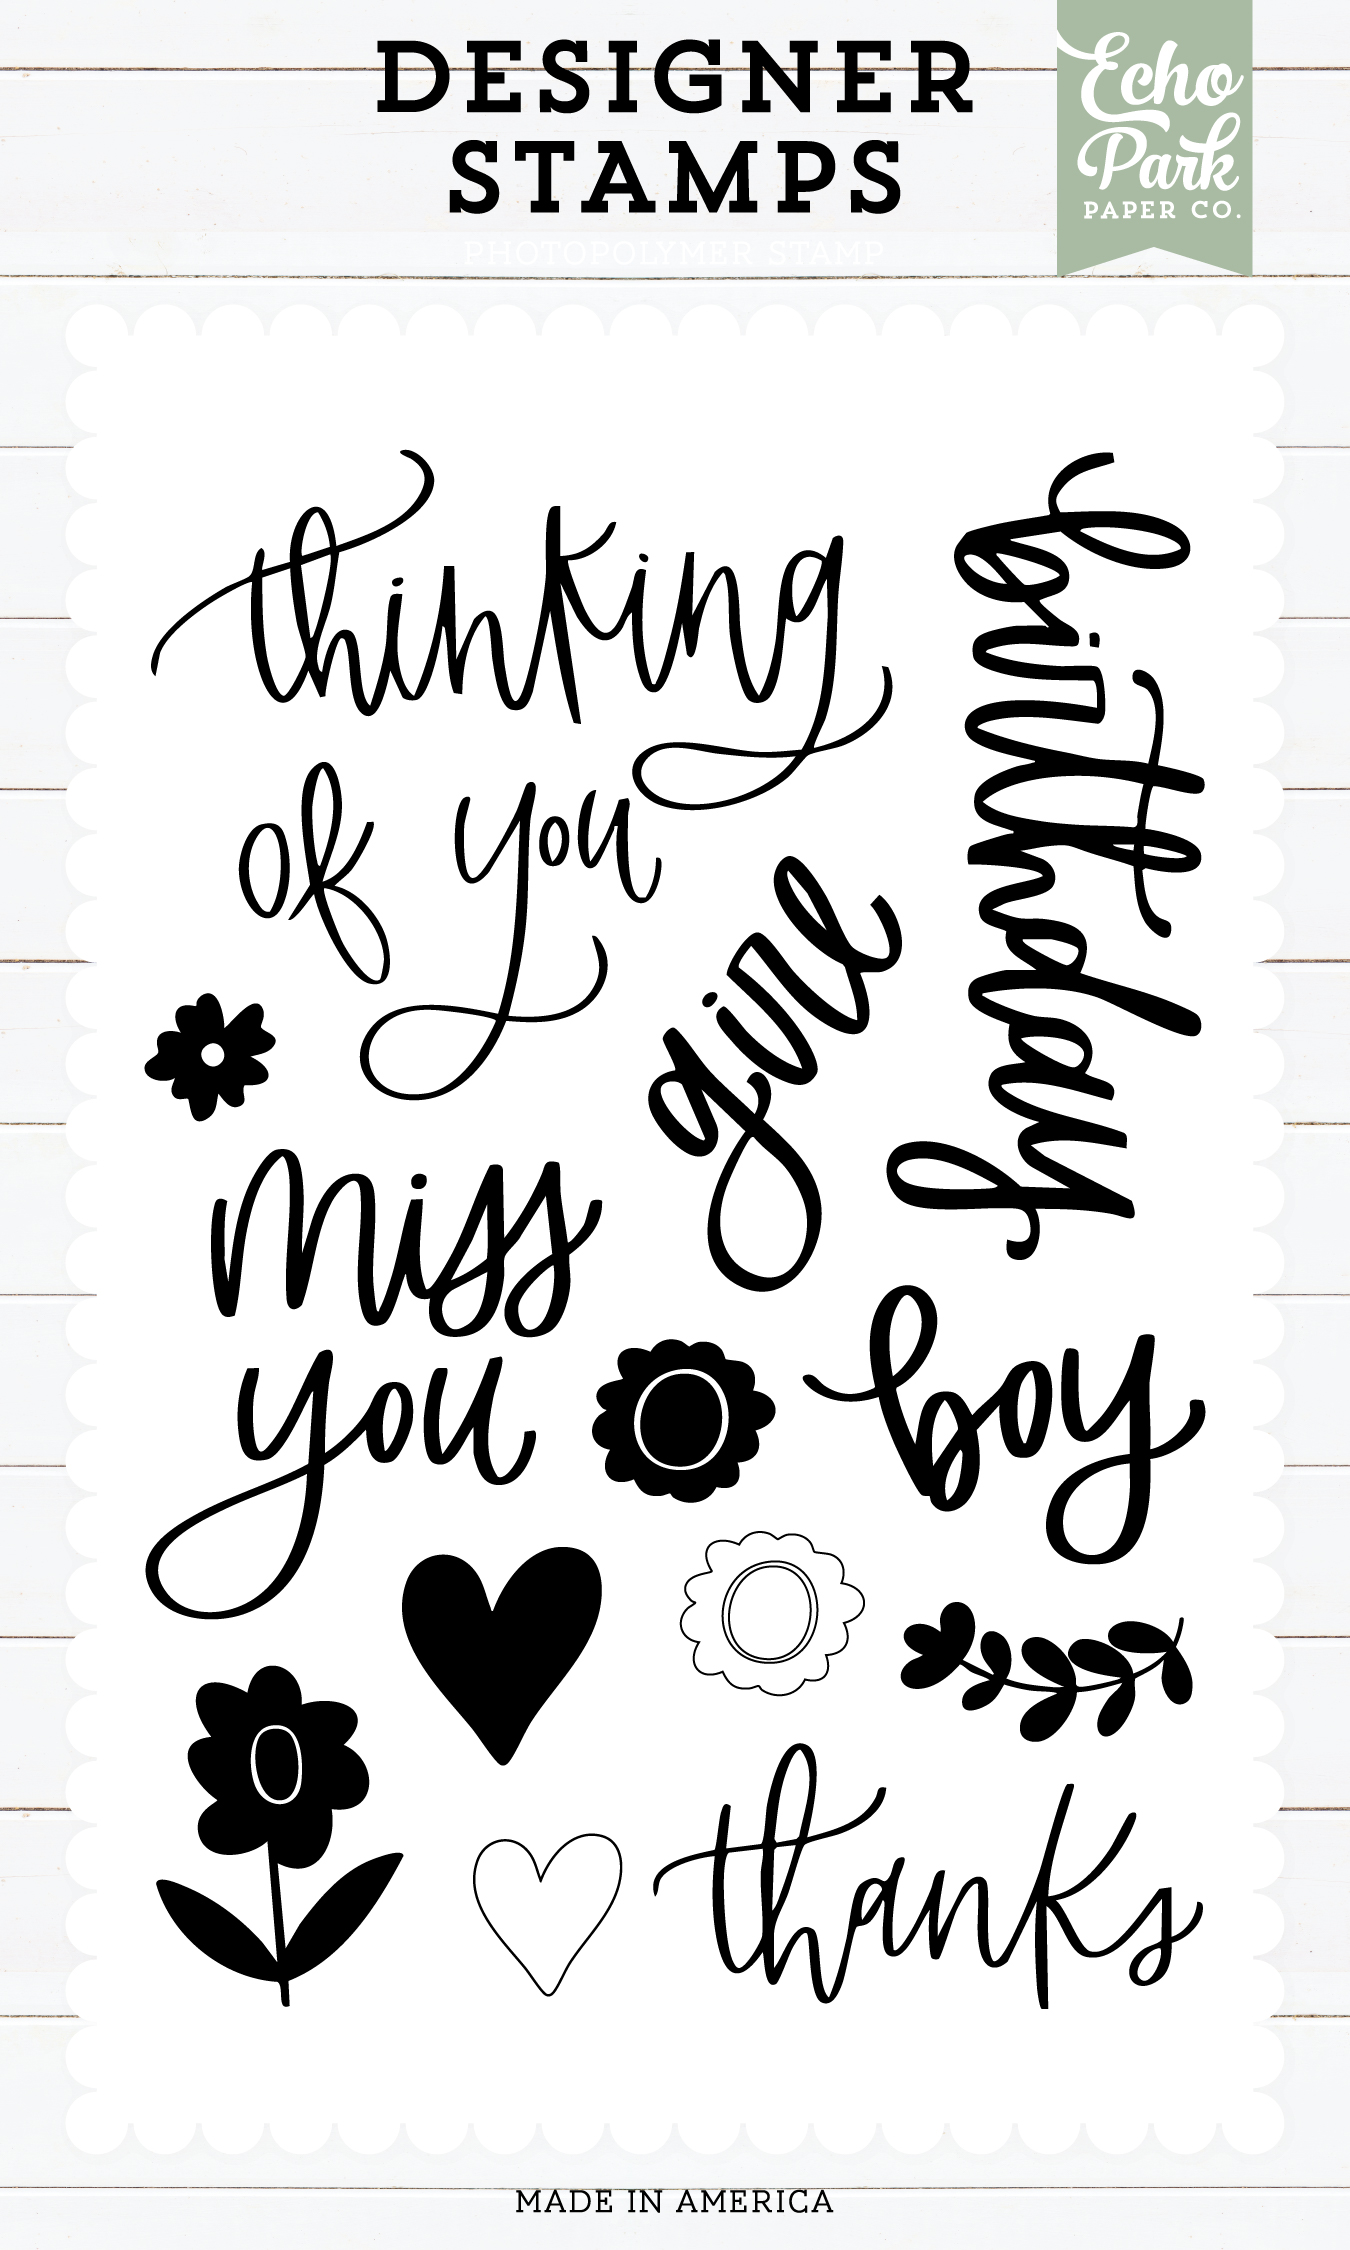 DESIGNER
STAMPS
PHOTOPOLYMER STAMP
Echo
Park
PAPER CO.
thinking
of you
birthday
girl
miss
you
boy
thanks
MADE IN AMERICA